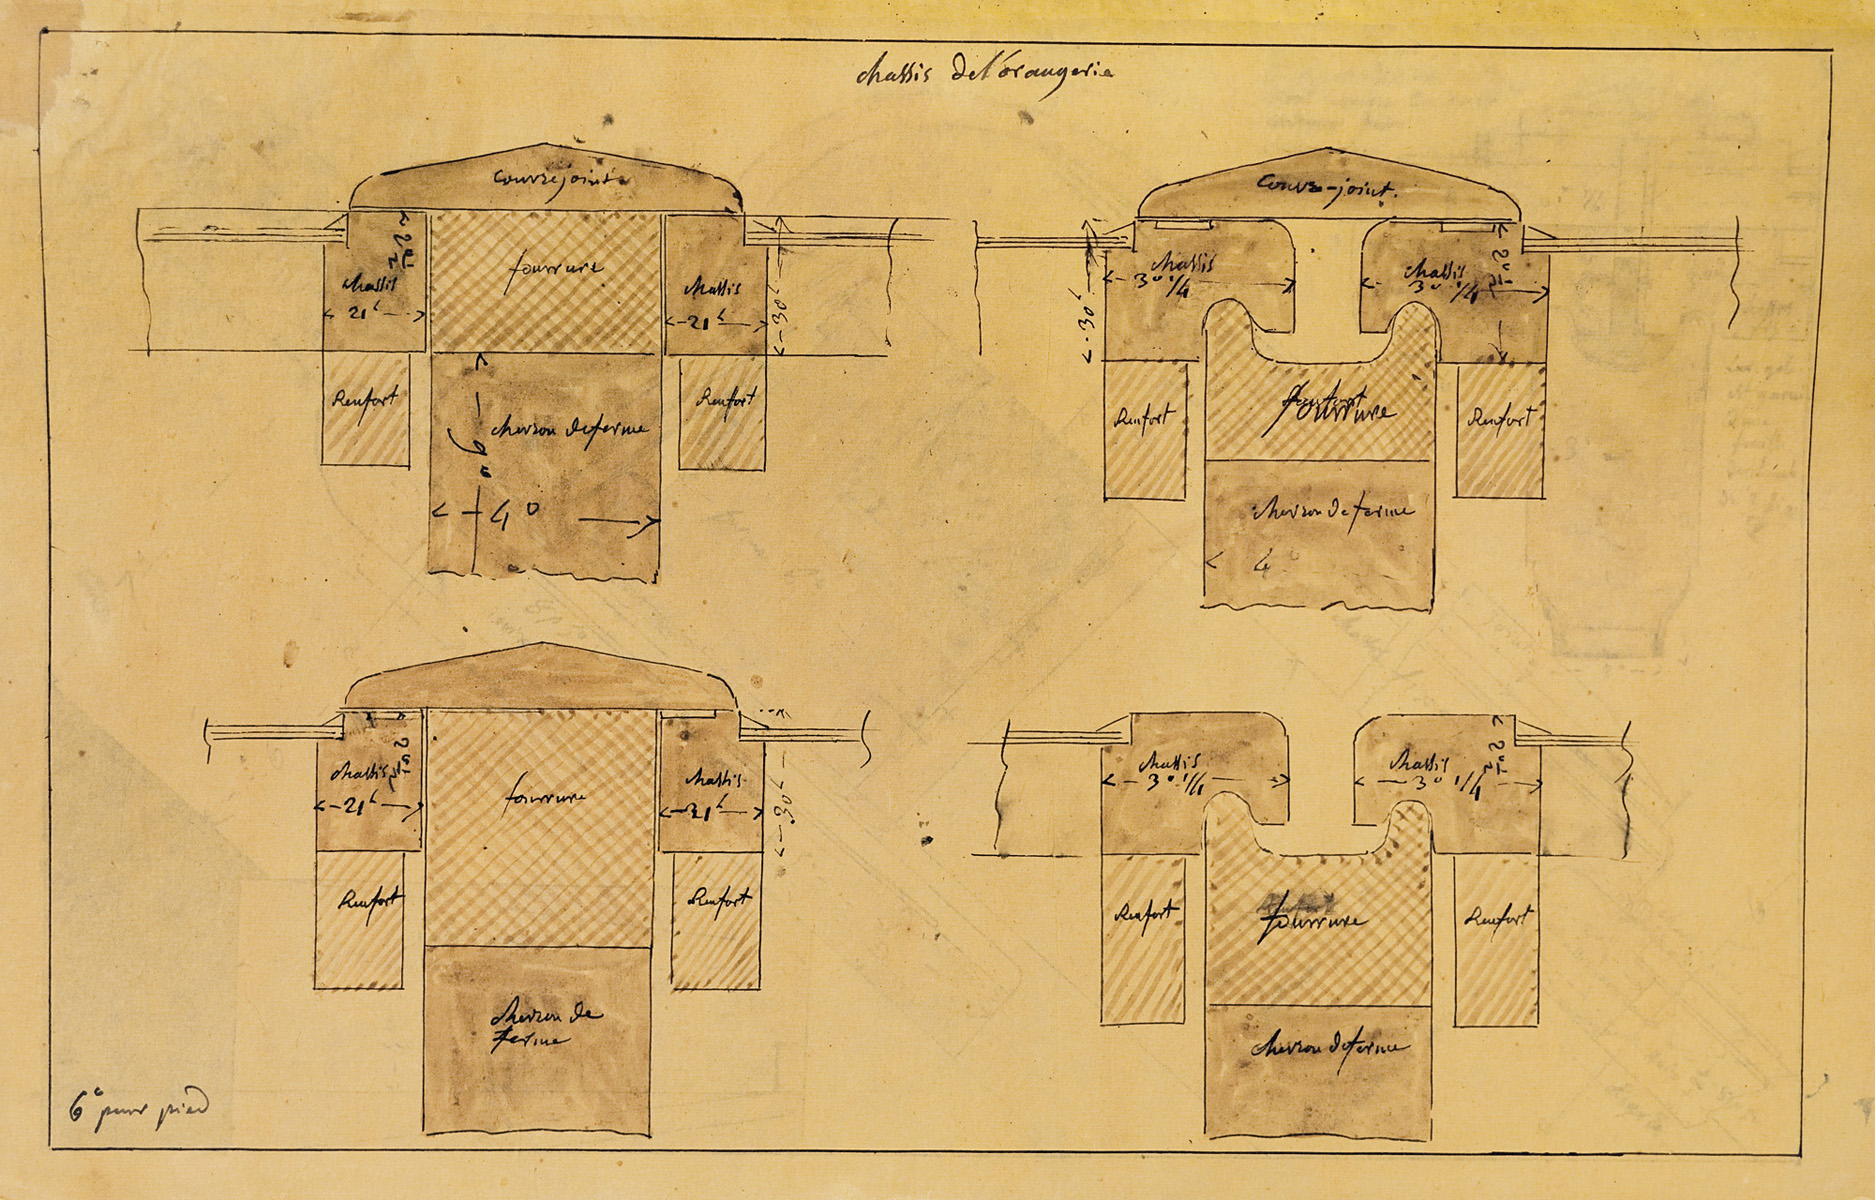 chassis de l'orangerie
couvrejoint
fourrure
chassis
21ˡ
2° ½
chassis
21ˡ
30ˡ
Renfort
Renfort
chevron de ferme
6°
4°
Couvre-joint.
chassis
3° ¼
30ˡ
chassis
3° ¼
2° ½
fourrure
Renfort
Renfort
chevron de ferme
4
chassis
21ˡ
2° ½
fourrure
chassis
21ˡ
30ˡ
Renfort
Renfort
chevron de
ferme
chassis
3° ¼
chassis
3° ¼
2° ½
Renfort
fourrure
Renfort
chevron de ferme
6° pour pied